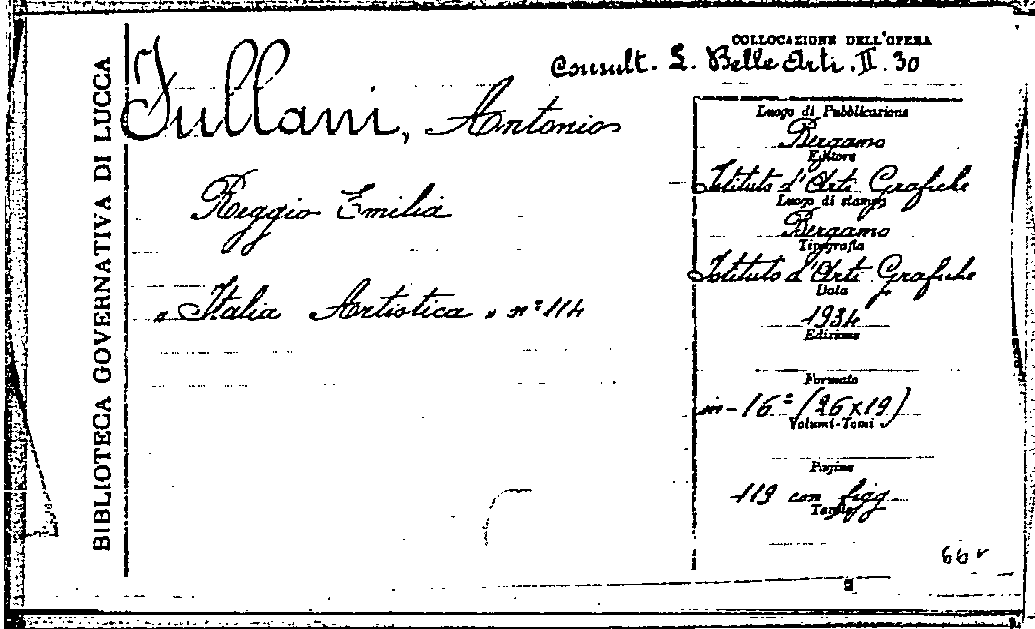 BIBLIOTECA GOVERNATIVA DI LUCCA
COLLOCAZIONE DELL'OPERA
Consult. S. Belle Arti. II. 30
Jullani, Antonio
Reggio Emilia
"Italia Artistica" nº 114
Luogo di Pubblicazione
Bergamo
Editore
Istituto d'Arti Grafiche
Luogo di stampa
Bergamo
Tipografia
Istituto d'Arti Grafiche
Data
1934
Edizione
Formato
in-16º (26x19)
Volumi-Tomi
Pagine
119 con figg.
Tavole